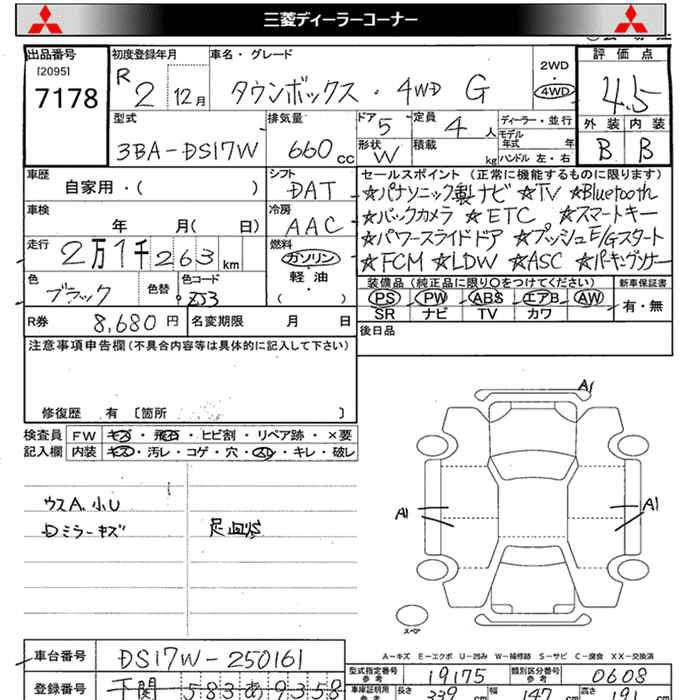 三菱ディーラーコーナー
出品番号
[2095]
7178
初度登録年月
R 2 12月
車名・グレード
タウンボックス・4WD G
2WD
・
4WD
評価点
4.5
外装 内装
B B
型式
3BA-DS17W
排気量
660cc
ドア 5
形状 W
定員 4人
積載 kg
ディーラー・並行
モデル年式 年
ハンドル 左・右
車歴
自家用・( )
シフト
DAT
セールスポイント(正常に機能するものに限ります)
☆パナソニック製ナビ ☆TV ☆Bluetooth
☆バックカメラ ☆ETC ☆スマートキー
☆パワースライドドア ☆プッシュE/Gスタート
☆FCM ☆LDW ☆ASC ☆パーキングセンサー
車検
年 月( 日)
冷房
AAC
走行
2万1千263km
燃料
ガソリン
軽・油
・
( )
色
ブラック
色替
色コード
ZJ3
装備品(純正品に限り○をつけてください)
PS PW ABS エアB AW
SR ナビ TV カワ
新車保証書
有・無
R券 8,680円
名変期限 月 日
後日品
注意事項申告欄(不具合内容等は具体的に記入して下さい)
修復歴 有 〔箇所 〕
検査員記入欄
FW キズ・飛石・ヒビ割・リペア跡・×要
内装 キズ・汚レ・コゲ・穴・スレ・キレ・破レ
ウスA、小U
Dミラーキズ
足回サビ
A1
A1
A1
スペア
A-キズ E-エクボ U-凹み W-補修跡 S-サビ C-腐食 XX-交換済
車台番号
DS17W-250161
型式指定番号 参考
19175
類別区分番号 参考
0608
登録番号
下関 583 あ 9358
車庫証明用 参考
長さ 339
幅 147
高さ 191